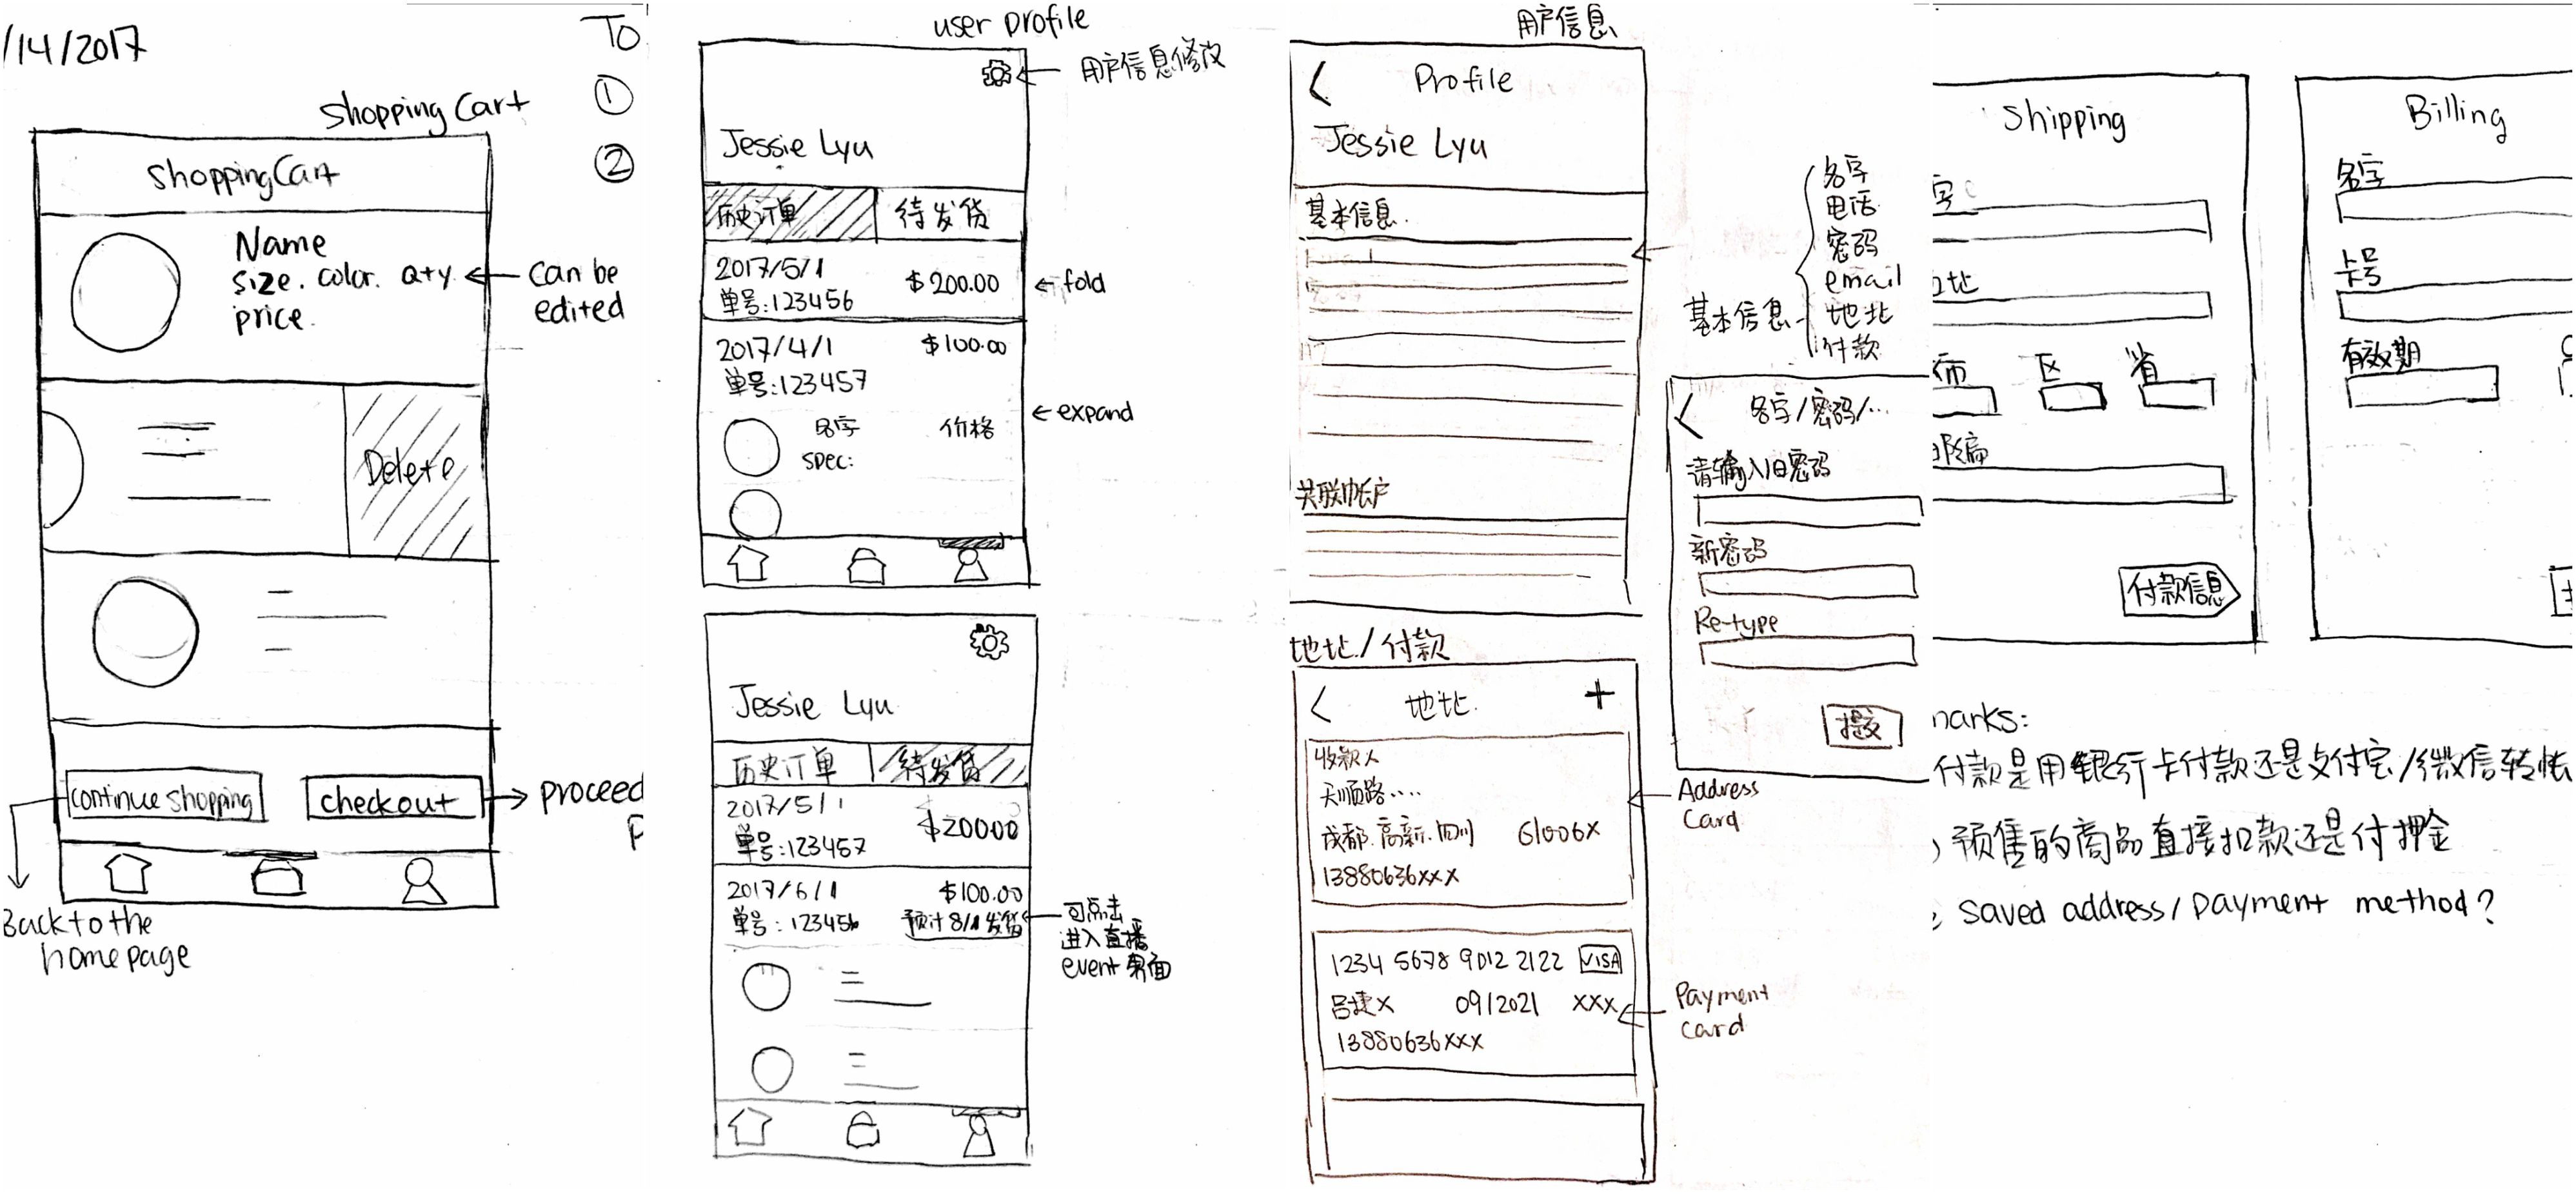 /14/2017
TO
①
②
shopping Cart
shopping Cart
Name
size. color. Qty.
price.
can be
edited
Delete
continue shopping
checkout
proceed
Back to the
homepage
user profile
用户信息修改
Jessie Lyu
历史订单
待发货
2017/5/1
$200.00
单号:123456
fold
2017/4/1
$100.00
单号:123457
expand
名字
价格
spec:
Jessie Lyu
历史订单
待发货
2017/5/1
$200.00
单号:123457
2017/6/1
$100.00
单号:123456
预计8/1发货
可点击
进入直播
event界面
用户信息
Profile
Jessie Lyu
基本信息
关联帐户
基本信息
名字
电话
密码
email
地址
付款
名字/密码/...
请输入旧密码
新密码
Re-type
提交
地址/付款
地址
+
收款人
天顺路....
成都.高新.四川
61006X
13880636xxx
Address
Card
1234 5678 9012 2122
VISA
吕捷X
09/2021
XXX
13880636xxx
Payment
card
Shipping
字
址
市
区
省
邮编
付款信息
Billing
名字
卡号
有效期
marks:
付款是用银行卡付款还是支付宝/微信转帐
预售的商品直接扣款还是付押金
saved address/payment method?